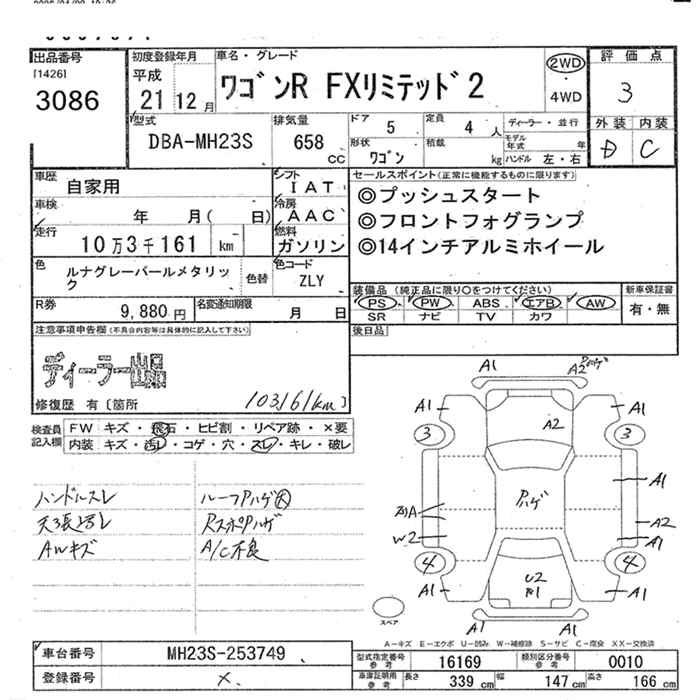 出品番号
[1426]
3086
初度登録年月
平成
21 12 月
車名・グレード
ワゴンR FXリミテッド2
2WD
・
4WD
評価点
3
外装 内装
D C
型式
DBA-MH23S
排気量
658 cc
ドア 5
定員 4 人
ディーラー・並行
形状 ワゴン
積載 kg
モデル年式 年
ハンドル 左・右
車歴 自家用
シフト IAT
車検 年 月( 日)
冷房 AAC
走行 10万3千161 km
燃料 ガソリン
セールスポイント(正常に機能するものに限ります)
◎プッシュスタート
◎フロントフォグランプ
◎14インチアルミホイール
色 ルナグレーパールメタリック
色替
色コード ZLY
装備品 (純正品に限り○をつけてください)
PS PW ABS エアB AW
SR ナビ TV カワ
新車保証書
有・無
R券 9,880 円
名変通知期限 月 日
後日品
注意事項申告欄(不具合内容等は具体的に記入して下さい)
ディーラー出品
修復歴 有〔箇所 103161km〕
検査員記入欄
FW キズ・飛石・ヒビ割・リペア跡・×要
内装 キズ・汚レ・コゲ・穴・スレ・キレ・破レ
ハンドルスレ ルーフPハゲ大
天張汚レ RスポPハゲ
AWキズ A/C不良
A1 A2 Pハゲ
A1 A1
3 A2 3
A1
Pハゲ
A2
W2 A1
4 4
U2
A1 A1
A1 A1
スペア
A-キズ E-エクボ U-凹み W-補修跡 S-サビ C-腐食 XX-交換済
車台番号 MH23S-253749
登録番号 ×
型式指定番号 参考 16169
類別区分番号 参考 0010
車庫証明用 参考 長さ 339 cm 幅 147 cm 高さ 166 cm